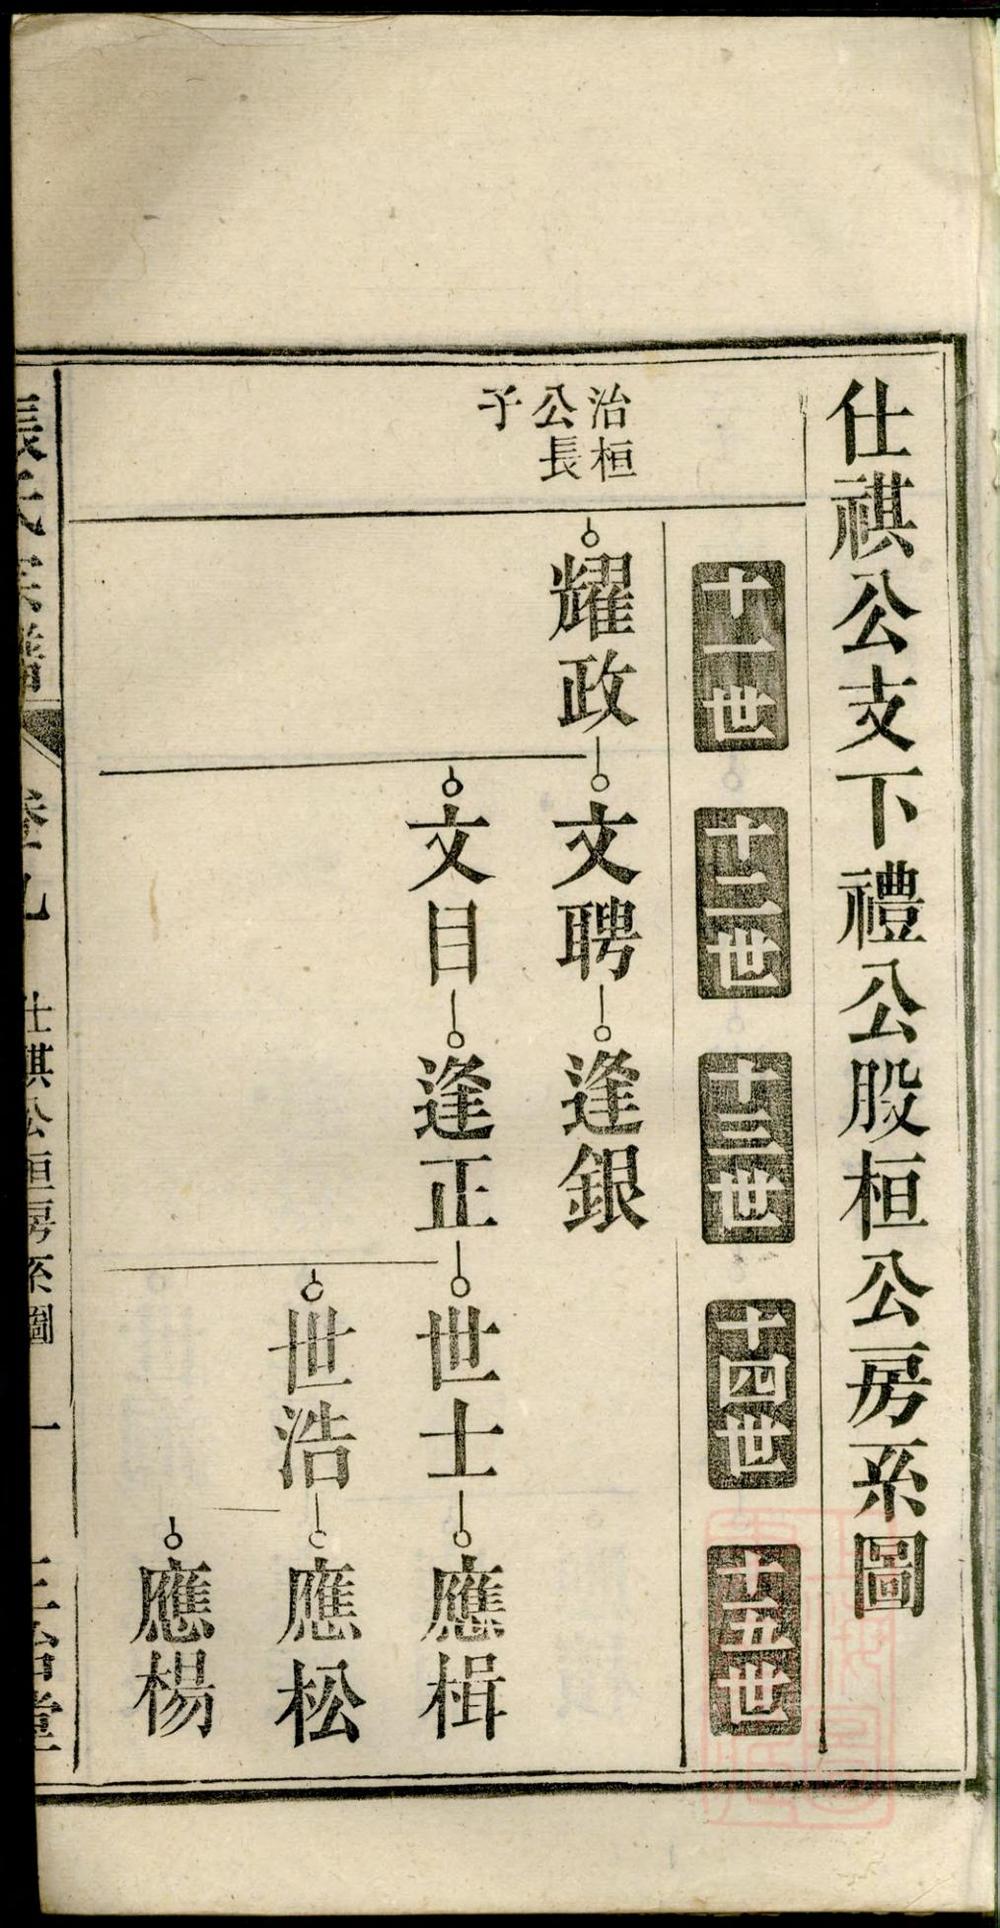 仕祺公支下禮公股桓公房系圖
十一世
十二世
十三世
十四世
十五世
治桓
公長
子
耀政
文聘
逢銀
文目
逢正
世士
應楫
世浩
應松
應楊
氏宗譜
卷九
仕祺公桓房系圖
一
堂